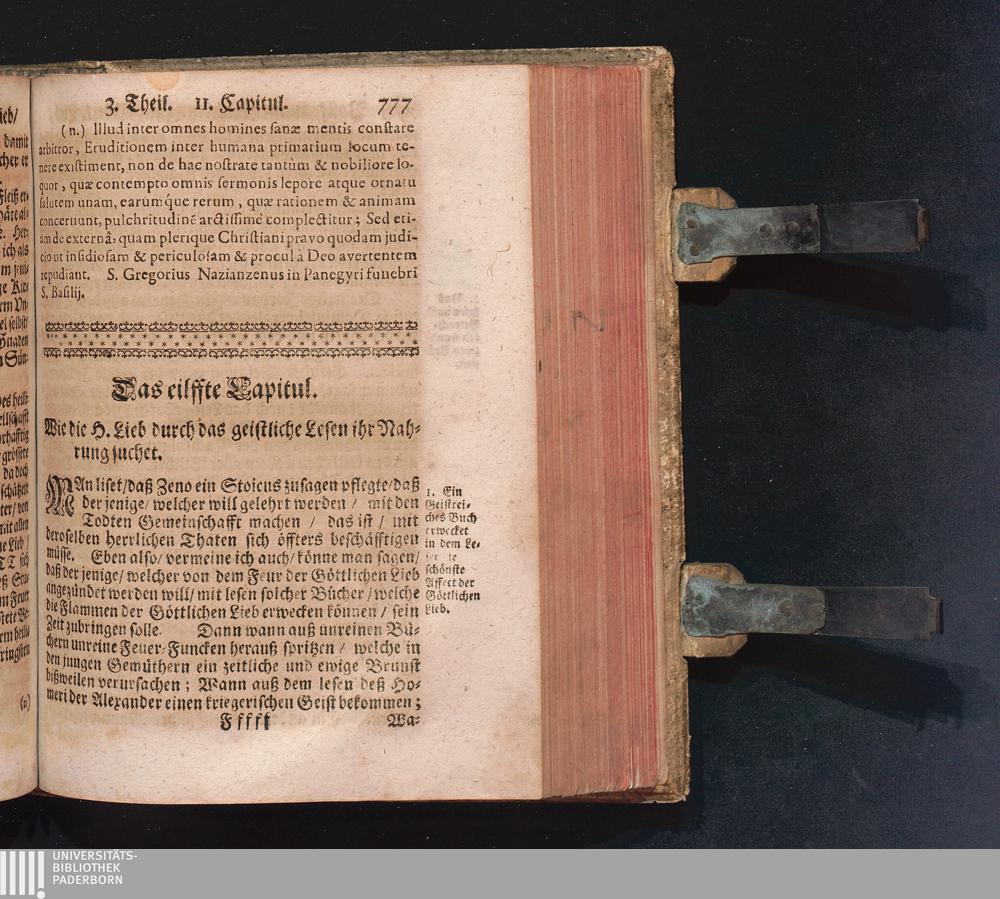 3. Theil. 11. Capitul. 777
(n.) Illud inter omnes homines sanæ mentis constare
arbitror, Eruditionem inter humana primarium locum te-
nere existiment, non de hac nostrate tantùm & nobiliore lo-
quor, quæ contempto omnis sermonis lepore atque ornatu
salutem unam, earumque rerum, quæ rationem & animam
concernunt, pulchritudinē arctissimè complectitur; Sed eti-
am de externâ, quam plerique Christiani pravo quodam judi-
cio ut insidiosam & periculosam & procul à Deo avertentem
repudiant. S. Gregorius Nazianzenus in Panegyri funebri
S. Basilij.
Das eilffte Capitul.
Wie die H. Lieb durch das geistliche Lesen ihr Nah-
rung suchet.
MAn liset/daß Zeno ein Stoicus zusagen pflegte/daß
der jenige/welcher will gelehrt werden / mit den
Todten Gemeinschafft machen / das ist / mit
deroselben herrlichen Thaten sich öffters beschäfftigen
müsse. Eben also/ vermeine ich auch/ könne man sagen/
daß der jenige/ welcher von dem Feur der Göttlichen Lieb
angezündet werden will/ mit lesen solcher Bücher/ welche
die Flammen der Göttlichen Lieb erwecken können / sein
Zeit zubringen solle. Dann wann auß unreinen Bü-
chern unreine Feuer-Funcken herauß spritzen / welche in
den jungen Gemüthern ein zeitliche und ewige Brunst
bißweilen verursachen; Wann auß dem lesen deß Ho-
meri der Alexander einen kriegerischen Geist bekommen;
Fffff Wa-
1. Ein
Geistrei-
ches Buch
erwecket
in dem Le-
schönste
Affect der
Göttlichen
Lieb.
ieb/
damit
cher er
Fleiß er-
ich als
selbst/
Gnaden
Sün-
(n)
UNIVERSITÄTS-
BIBLIOTHEK
PADERBORN